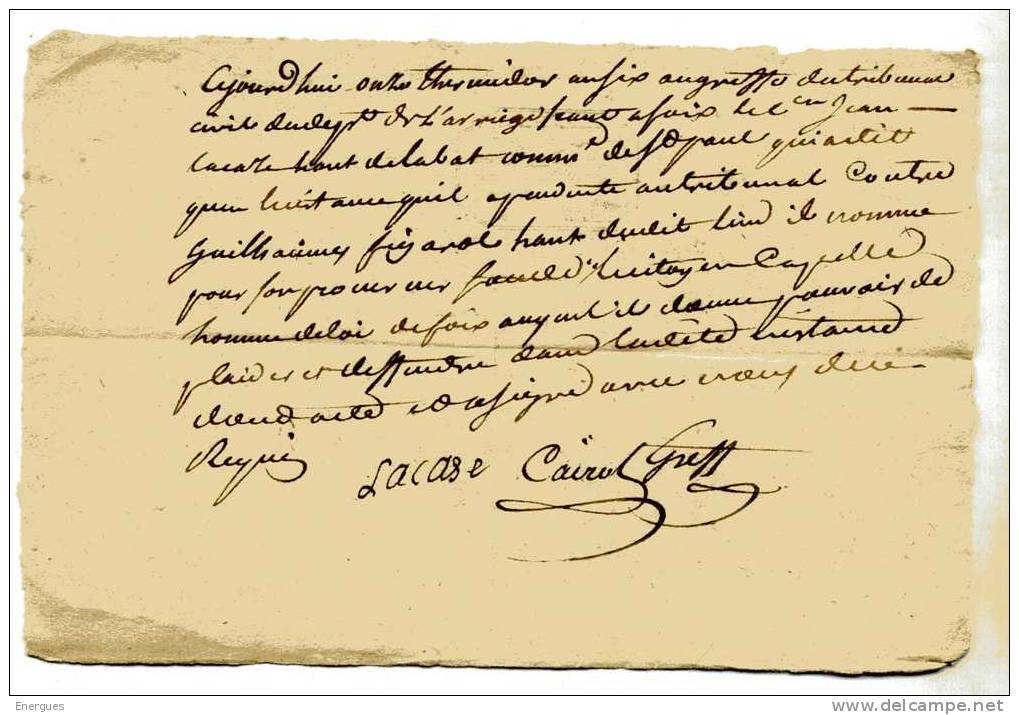 Ajourd'hui onze thermidor an six au greffe du tribunal
civil du dept de L'arriege seant a foix le Cen Jean
Lacaze hant de labat comme de St paul qui a dit
quen linstance quil a pendante au tribunal Contre
Guilhaumes figarol hant dudit lieu il nomme
pour son procureur le citoyen Capelle
homme de loi de foix auquel il donne pouvoir de
plaider et deffendre dans ladite instance
dont acte et a signé avec nous de ce
Requis
Lacase Caïrol Greff
Energues
www.delcampe.net